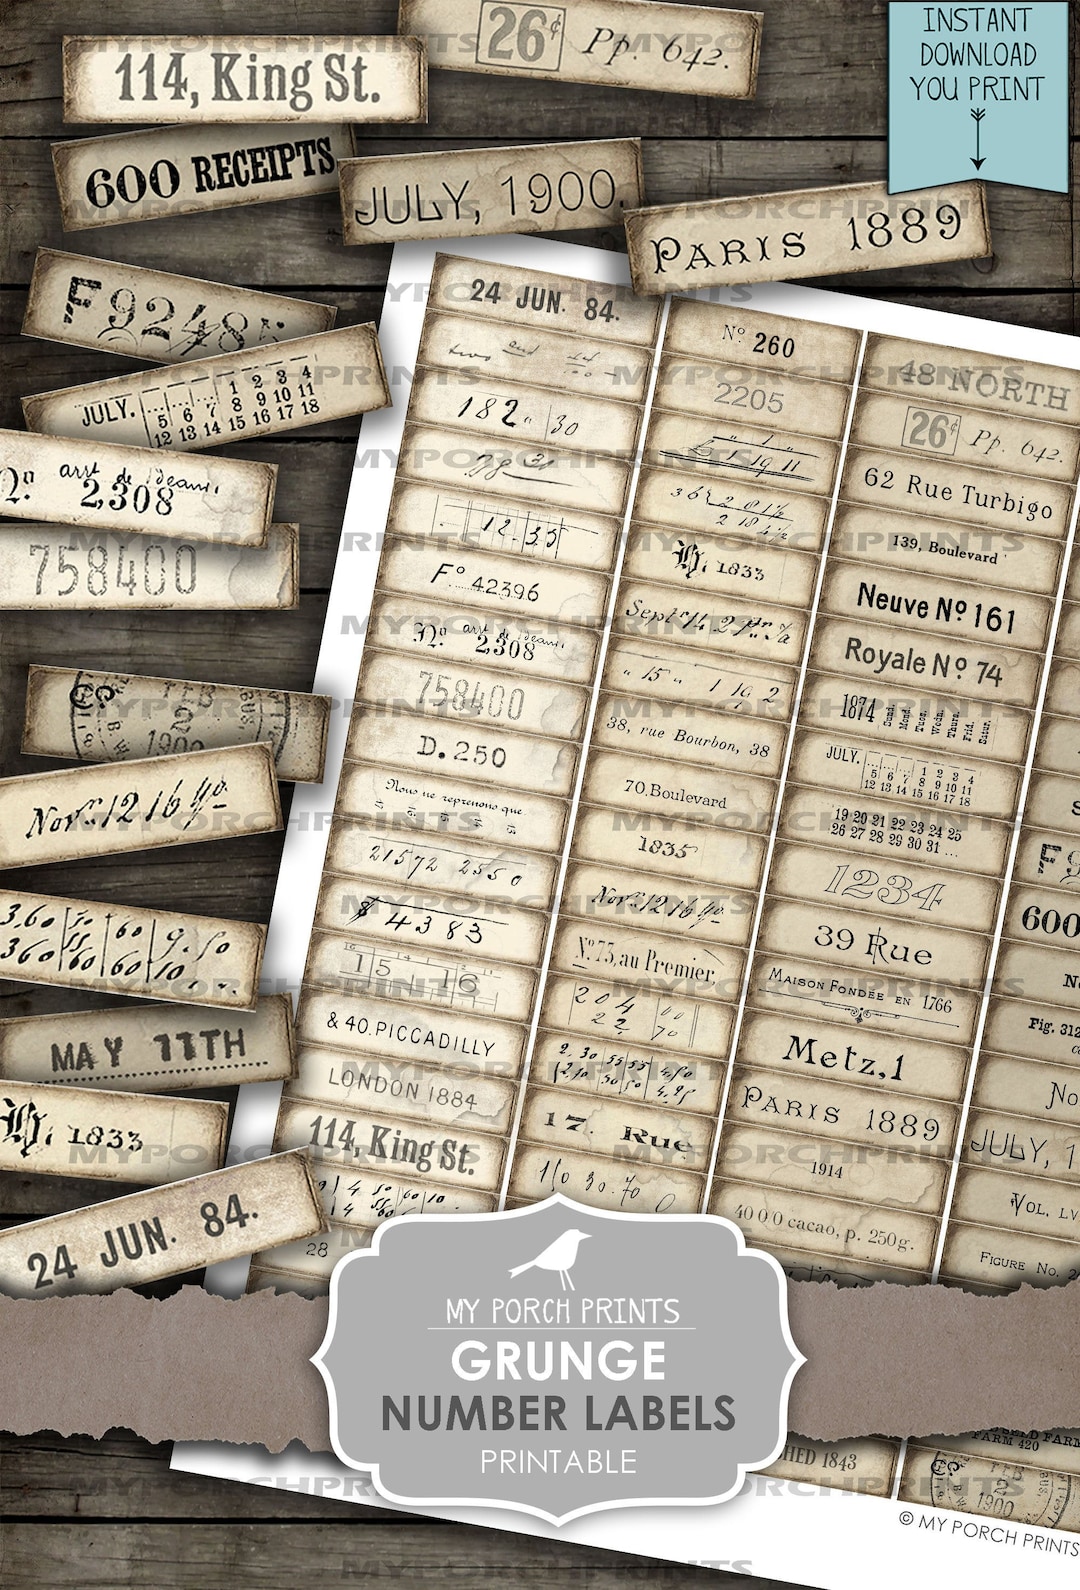 INSTANT
DOWNLOAD
YOU PRINT
114, King St.
26¢ Pp. 642.
600 RECEIPTS
JULY, 1900.
PARIS 1889
F 92485
JULY. 1 2 3 4
5 6 7 8 9 10 11
12 13 14 15 16 17 18
No. arrt de Beaun.
2,308
758400
2
1900
Nov. 12 16 40
3.60
360 60 60
MAY 11TH
H. 1833
24 JUN. 84.
24 JUN. 84.
two and
182 " 30
12.35
F.º 42396
No. arrt de Beaun.
2308
758400
D. 250
Nous ne reprenons que
21572 2550
$ 4383
15 16
& 40. PICCADILLY
LONDON 1884
114, King St.
28
Nº 260
2205
H. 1833
" 15 " 1 19 2
38, rue Bourbon, 38
70. Boulevard
1835
Nov. 12 16 40
Nº 75, au Premier.
204 00
22 70
17. Rue
48 NORTH
26¢ Pp. 642.
62 Rue Turbigo
139, Boulevard
Neuve Nº 161
Royale Nº 74
1874 Sund. Mond. Tues. Wedn. Thurs. Frid. Satur.
JULY. 1 2 3 4
5 6 7 8 9 10 11
12 13 14 15 16 17 18
19 20 21 22 23 24 25
26 27 28 29 30 31 ...
1234
39 Rue
MAISON FONDÉE EN 1766
Metz, 1
PARIS 1889
1914
4000 cacao, p. 250g.
F 9
600
Fig. 312
No
JULY, 1
VOL. LV
FIGURE NO. 2
MY PORCH PRINTS
GRUNGE
NUMBER LABELS
PRINTABLE
HED 1843
SEED FARM
FARM 420
2
1900
© MY PORCH PRINTS
MYPORCHPRINTS